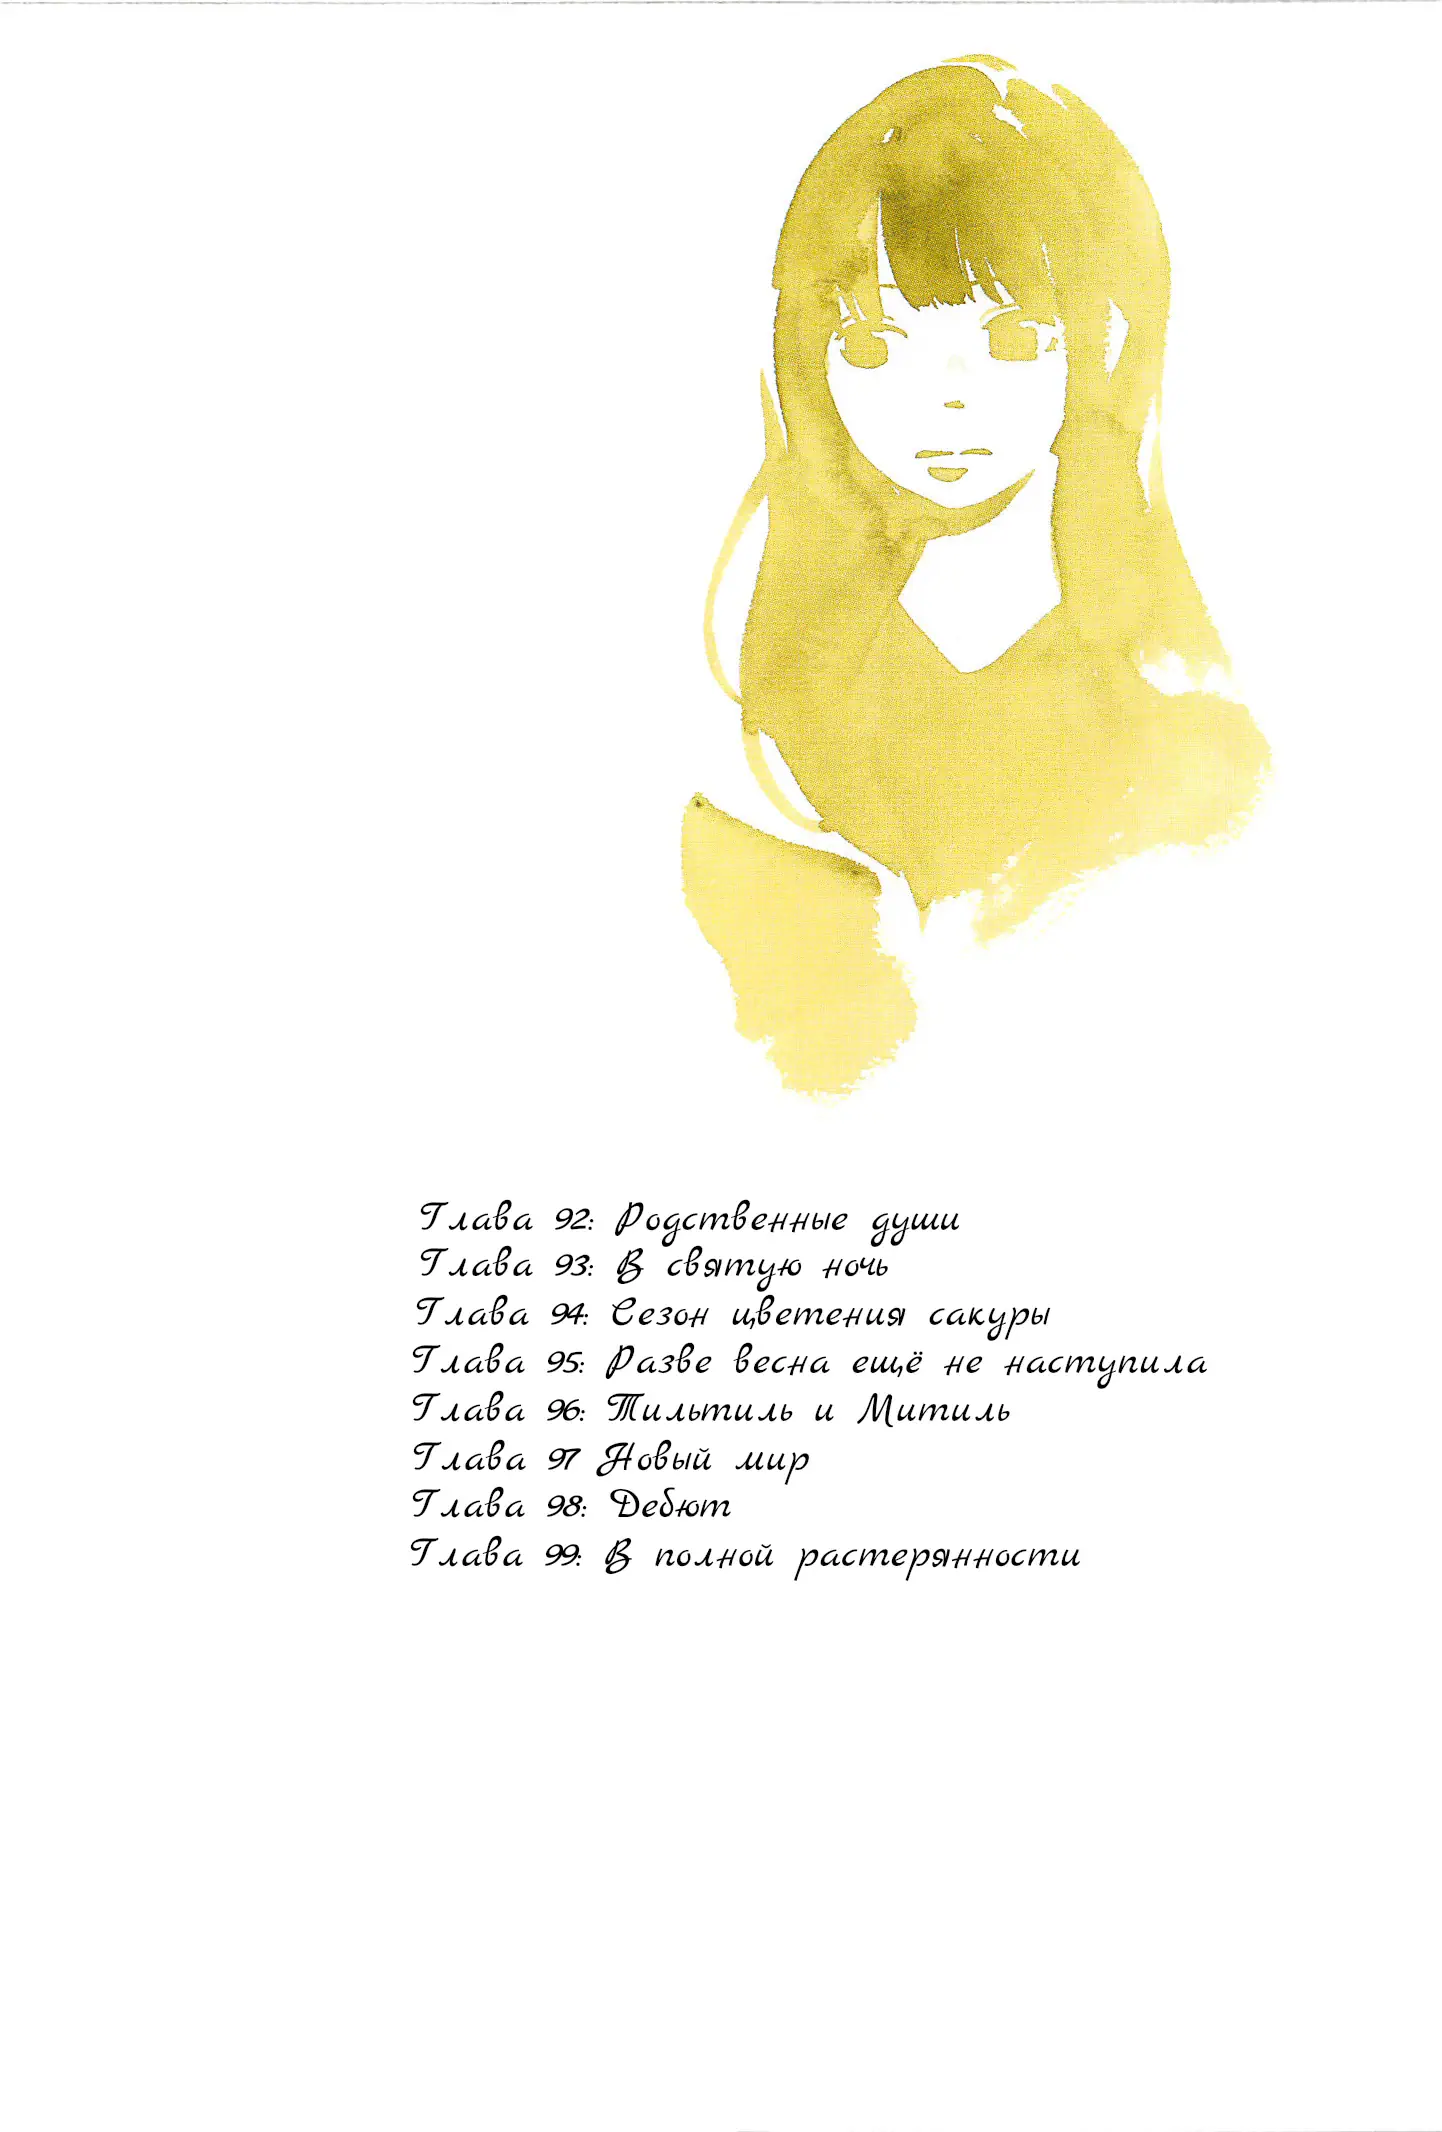 Глава 92: Родственные души
Глава 93: В святую ночь
Глава 94: Сезон цветения сакуры
Глава 95: Разве весна ещё не наступила
Глава 96: Тильтиль и Митиль
Глава 97 Новый мир
Глава 98: Дебют
Глава 99: В полной растерянности